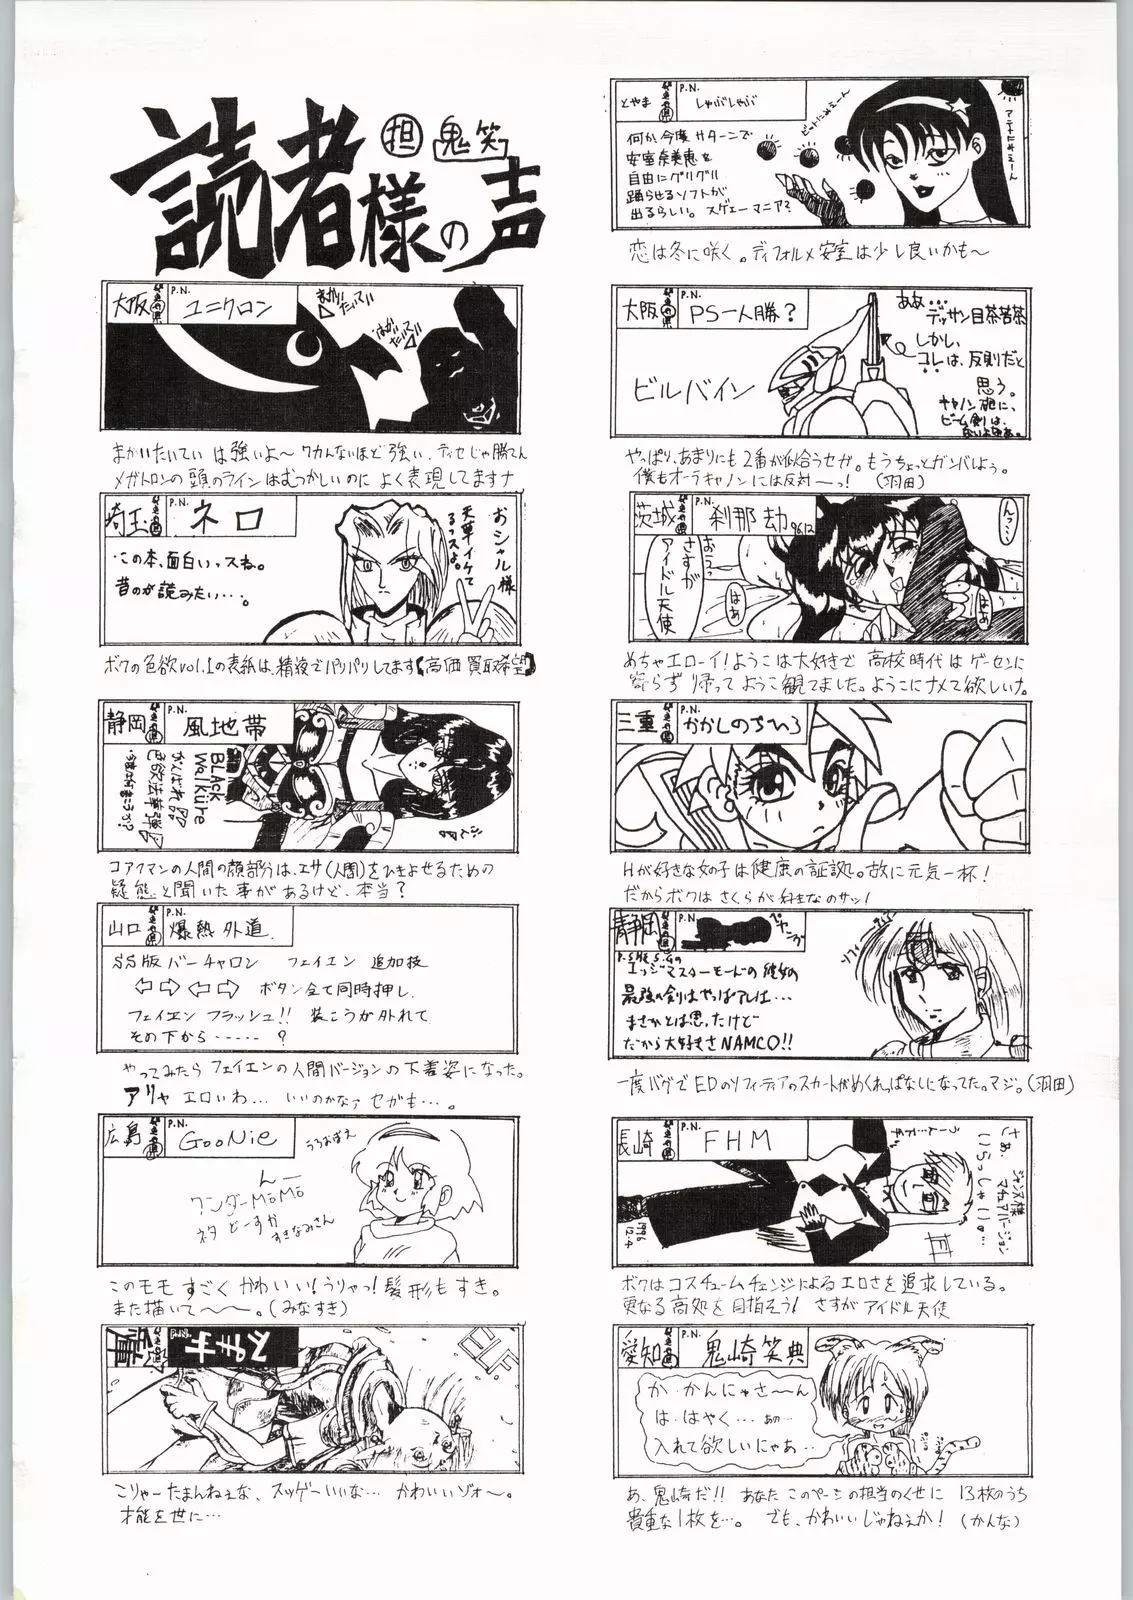 読者様の声
担 鬼笑
大阪 P.N. ユニクロン
まかいたいてい は強いよ〜 ワカんないほど強い、ティセじゃ勝てん
メガトロンの頭のラインはむつかしいのに よく表現してますナ
埼玉 P.N. ネロ
この本、面白いっスね。
昔のが読みたい・・・。
おシャル様
天草イケて
るっスよ。
ボクの色欲vol.1の表紙は、精液でパリパリしてます【高価買取希望】
静岡 P.N. 風地帯
BLACK
Walküre
がんばれ
色欲法華弾
コアクマンの人間の顔部分は、エサ(人間)をひきよせるための
疑態と聞いた事があるけど、本当?
山口 P.N. 爆熱外道
SS版バーチャロン フェイエン 追加技
⇦⇨⇦⇨ ボタン全て同時押し
フェイエン フラッシュ!! 装こうが外れて
その下から・・・・・・ ?
やってみたら フェイエンの人間バージョンの下着姿になった。
アリャ エロいわ・・・ いいのかなァ セガも・・・。
広島 P.N. GooNie
うろおぼえ
んー
ワンダーMōMō
ネタ どーすか
すきなみさん
このモモ すごく かわいい!うりゃっ!髪形もすき。
また描いて〜〜。(みなすき)
P.N. スモナ
こりゃーたまんねぇな、スッゲーいいな・・・ かわいいゾォ〜。
才能を世に・・・
とやま P.N. しゃぶしゃぶ
何か今度サターンで
安室奈美恵を
自由にグリグリ
踊らせるソフトが
出るらしい。スゲェーマニア?
恋は冬に咲く。ディフォルメ安室は少し良いかも〜
大阪 P.N. PS一人勝?
ビルバイン
ああ・・・
デッサン目茶苦茶
しかし、
コレは、反則だと
思う。
キャノン砲に、
ビーム剣は、
やっぱり、あまりにも2番が似合うセガ。もうちょっとガンバレよぅ。
僕もオーラキャノンには反対〜っ! (羽田)
茨城 P.N. 刹那劫 96.12
んっ・・
さすが
アイドル天使
はぁ
はぁ
めちゃエローイ!ようこは大好きで 高校時代はゲーセンに
寄らず帰ってようこ観てました。ようこにナメて欲しいナ。
三重 P.N. かかしのちひろ
Hが好きな女の子は健康の証拠。故に元気一杯!
だからボクは さくらが好きなのサッ!
静岡 P.N.
エッジマスターモードの彼女の
最強の剣はやっぱアレは・・・
まさかとは思ったけど
だから大好きさNAMCO!!
一度バグでEDのソフィティアのスカートがめくれっぱなしになってた。マジ。(羽田)
長崎 P.N. FHM
さぁ、
いらっしゃいな・・・
1996
12.4
ボクはコスチュームチェンジによるエロさを追求している。
更なる高処を目指そう! さすがアイドル天使
愛知 P.N. 鬼崎笑典
か・かんにゃさ〜ん
は・はやく・・・ あの・・
入れて欲しいにゃあ・・・
あ、鬼崎だ!! あなた このページの担当のくせに 13枚のうち
貴重な1枚を・・。 でも、かわいいじゃねぇか! (かんな)